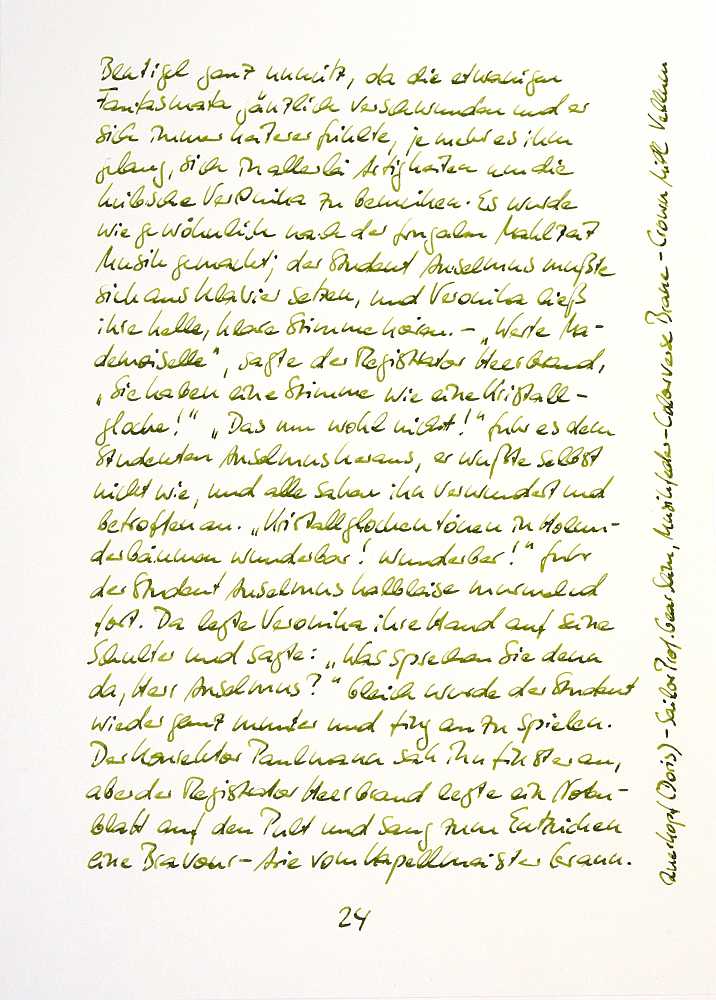 Blutigel ganz unnütz, da die etwanigen
Fantasmata gänzlich verschwunden und er
sich immer heiterer fühlte, je mehr es ihm
gelang, sich in allerlei Artigkeiten um die
hübsche Veronika zu bemühen. Es wurde
wie gewöhnlich nach der frugalen Mahlzeit
Musik gemacht; der Student Anselmus mußte
sich ans Klavier setzen, und Veronika ließ
ihre helle, klare Stimme hören. – „Werte Ma-
demoiselle", sagte der Registrator Heerbrand,
„Sie haben eine Stimme wie eine Kristall-
glocke!" „Das nun wohl nicht!" fuhr es dem
Studenten Anselmus heraus, er wußte selbst
nicht wie, und alle sahen ihn verwundert und
betroffen an. „Kristallglocken tönen in Holun-
derbäumen wunderbar! wunderbar!" fuhr
der Student Anselmus halbleise murmelnd
fort. Da legte Veronika ihre Hand auf seine
Schulter und sagte: „Was sprechen Sie denn
da, Herr Anselmus?" Gleich wurde der Student
wieder ganz munter und fing an zu spielen.
Der Konrektor Paulmann sah ihn finster an,
aber der Registrator Heerbrand legte ein Noten-
blatt auf den Pult und sang zum Entzücken
eine Bravour-Arie vom Kapellmeister Graun.
24
(Doris) – Sailor Prof. Gear Slim, Musikfeder – Colorverse Brane – Crown Mill Vellum